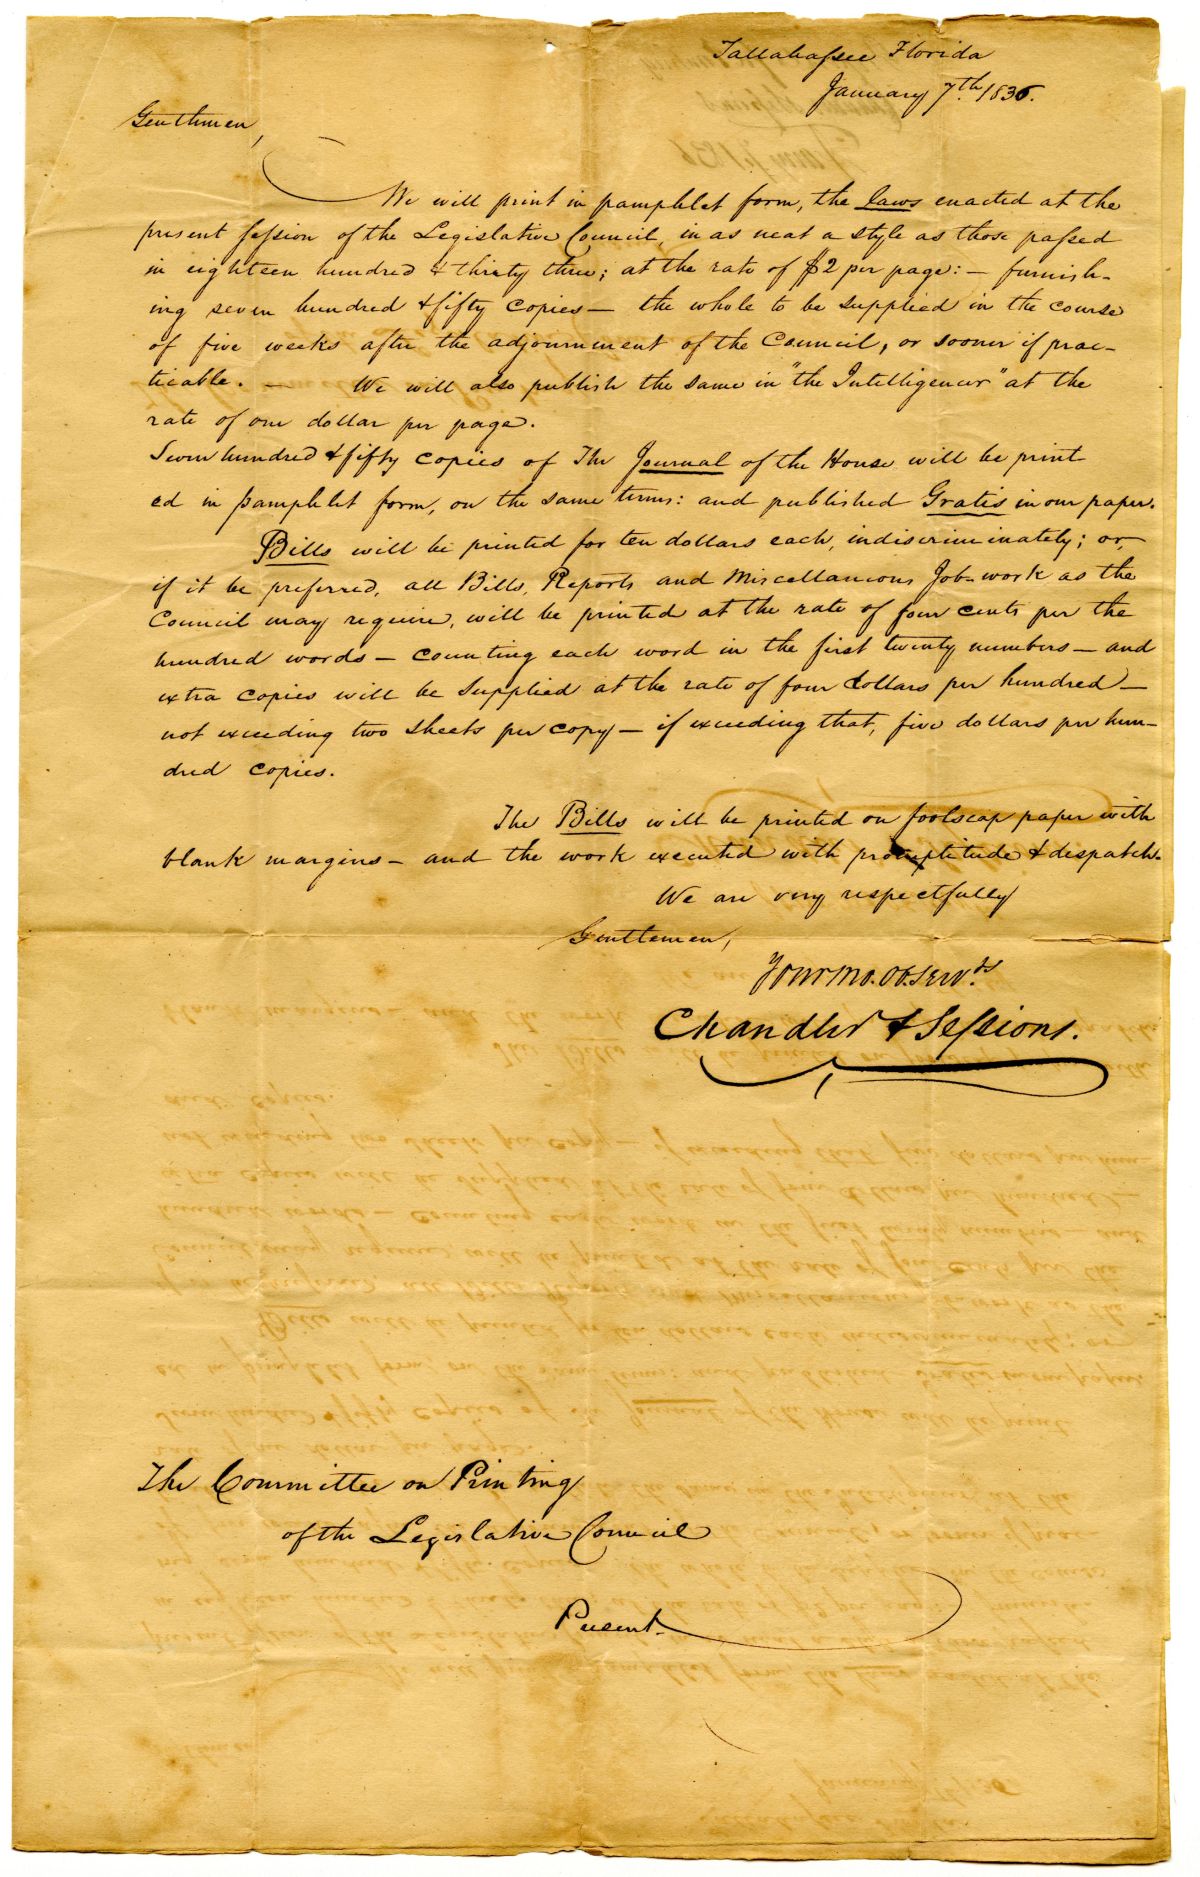 Tallahassee Florida
January 7th. 1836.
Gentlemen,
We will print in pamphlet form, the laws enacted at the
present session of the Legislative Council, in as neat a style as those passed
in eighteen hundred & thirty three; at the rate of $2 per page: — furnish-
ing seven hundred & fifty copies — the whole to be supplied in the course
of five weeks after the adjournment of the Council, or sooner if prac-
ticable. — We will also publish the same in "the Intelligencer" at the
rate of one dollar per page.
Seven hundred & fifty copies of The Journal of the House will be print
ed in pamphlet form, on the same terms: and published Gratis in our paper.
Bills will be printed for ten dollars each, indiscriminately; or,
if it be preferred, all Bills, Reports and Miscellaneous Job-work as the
Council may require, will be printed at the rate of four cents per the
hundred words — counting each word in the first twenty numbers — and
extra copies will be supplied at the rate of four dollars per hundred —
not exceeding two sheets per copy — if exceeding that, five dollars per hun-
dred copies.
The Bills will be printed on foolscap paper with
blank margins — and the work executed with promptitude & despatch.
We are very respectfully
Gentlemen,
Your Mo. Ob. Serv.ts
Chandler & Sessions.
The Committee on Printing
of the Legislative Council
Present